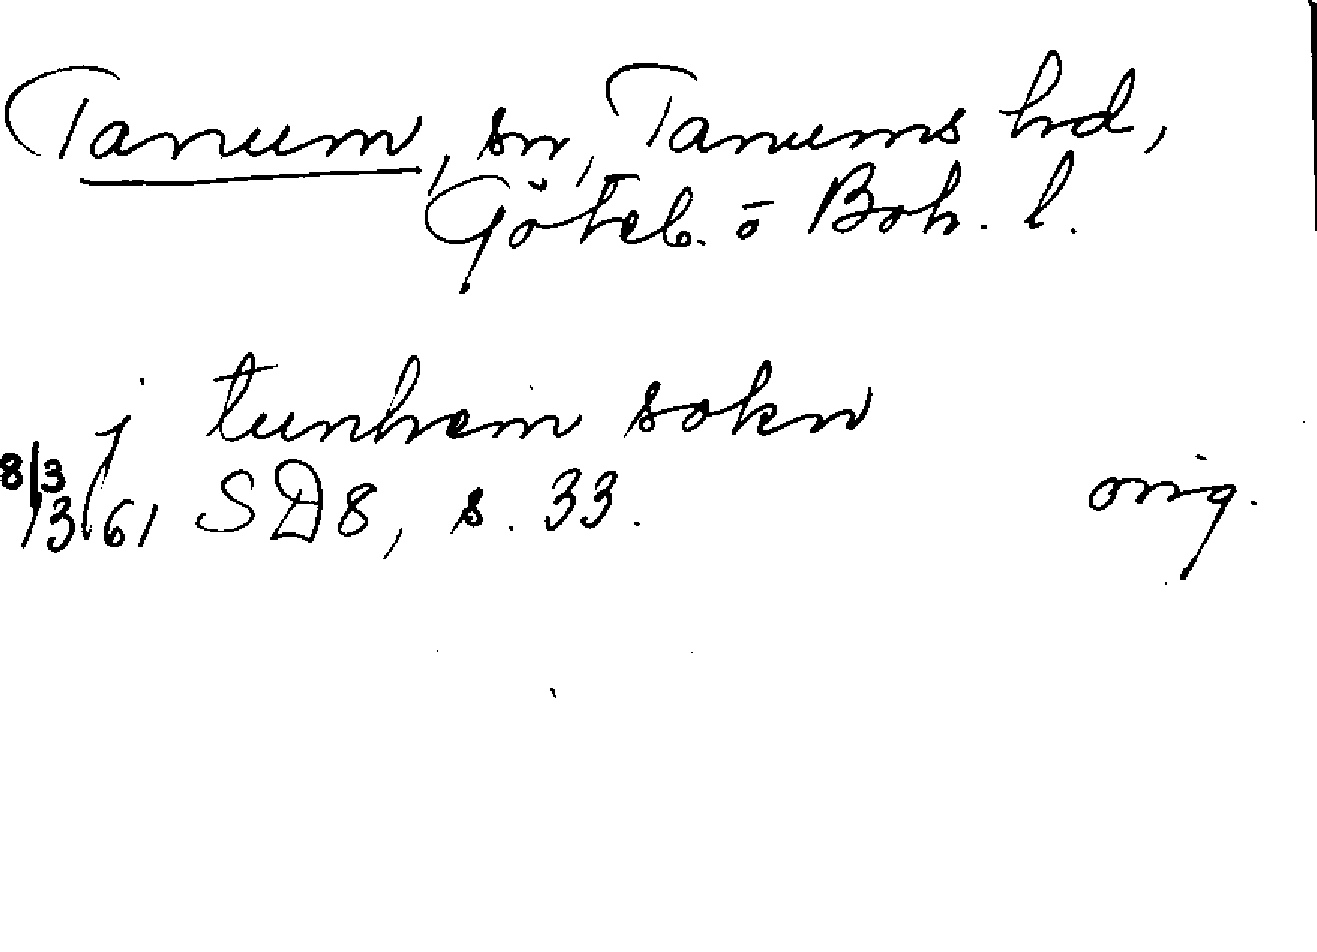 Tanum, sn, Tanums hd,
Göteb. o Boh. l.
j tunheim sokn
8/3
1361 SD8, s. 33. orig.